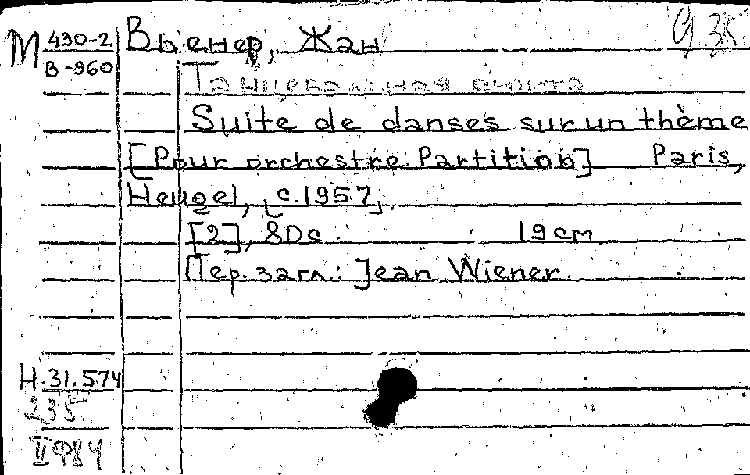 М 430-2
В-960
Вьенер, Жан
Танцевальная сюита
Suite de danses sur un thème
[Pour orchestre. Partition] Paris,
Heugel, [c.1957].
[2], 80 c. 19 cm
Пер. загл.: Jean Wiener
Н.31.574
235
II 984